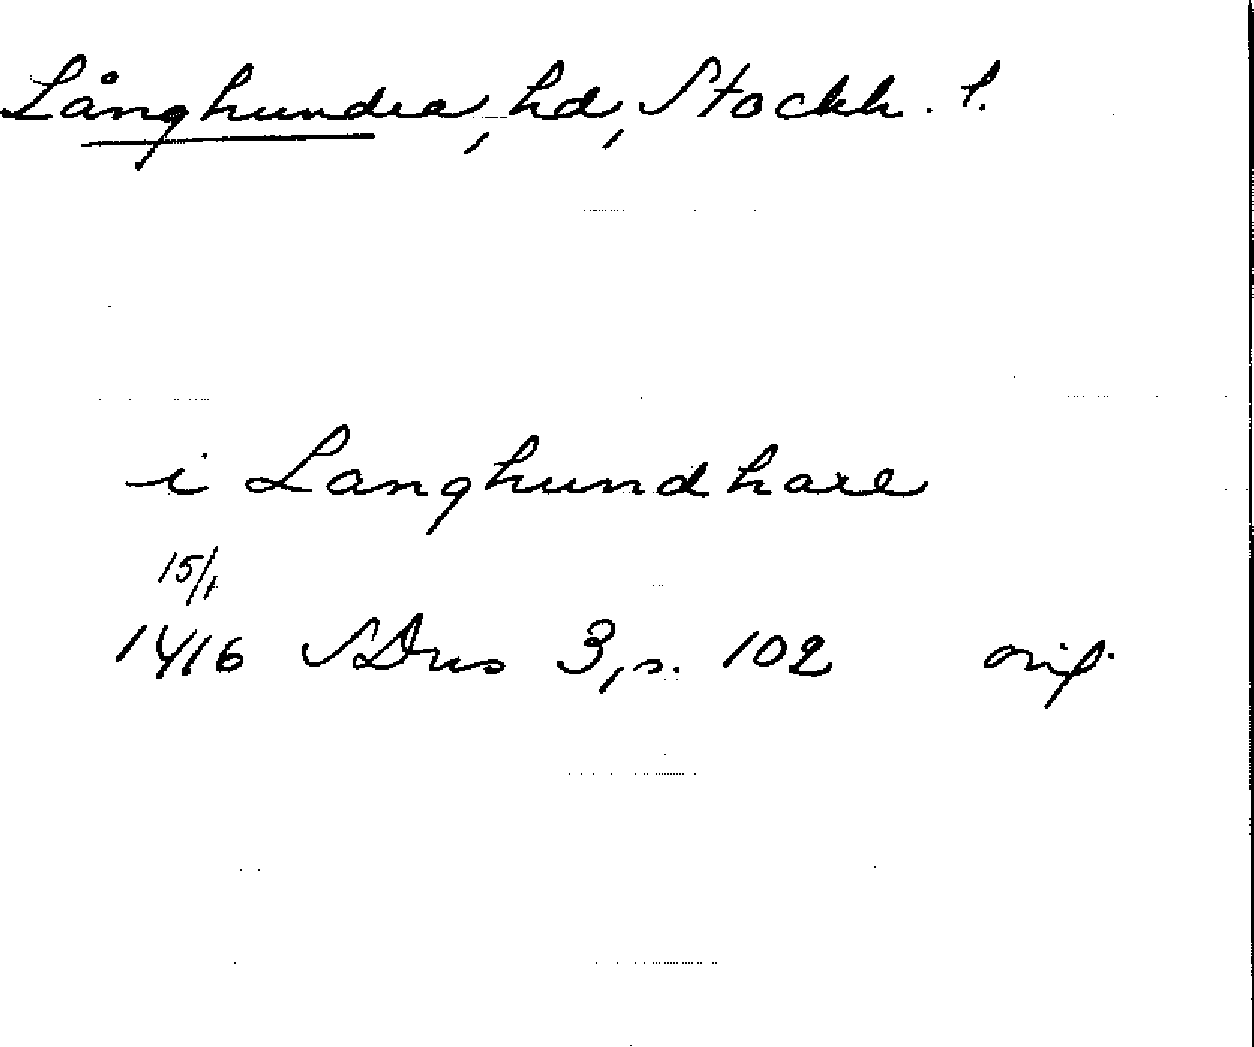 Långhundra, hd, Stockh. l.
i Langhundhare
15/1
1416 SDns 3, s. 102 orig.